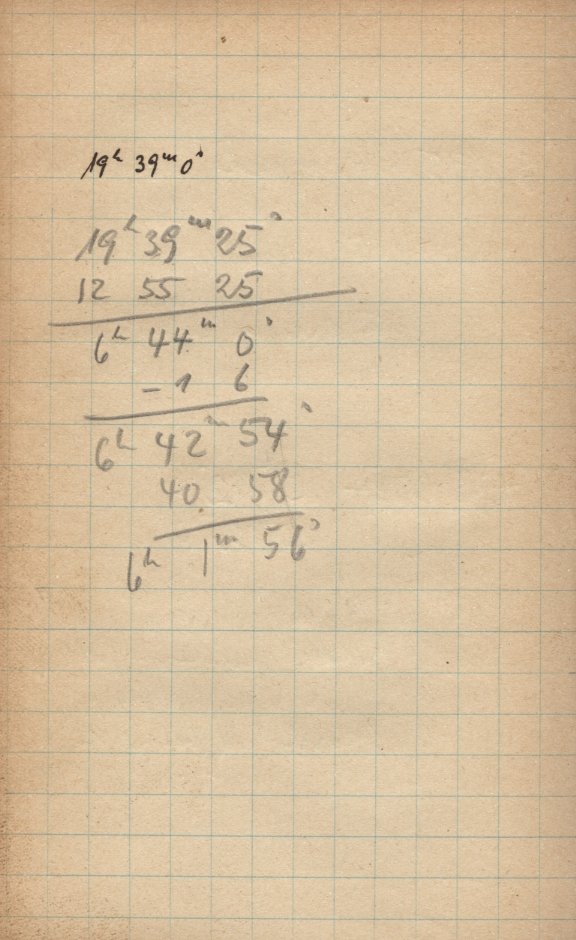 19ʰ 39ᵐ 0ˢ
19ʰ 39ᵐ 25ˢ
12 55 25
6ʰ 44ᵐ 0ˢ
- 1 6
6ʰ 42ᵐ 54ˢ
40 58
6ʰ 1ᵐ 56ˢ